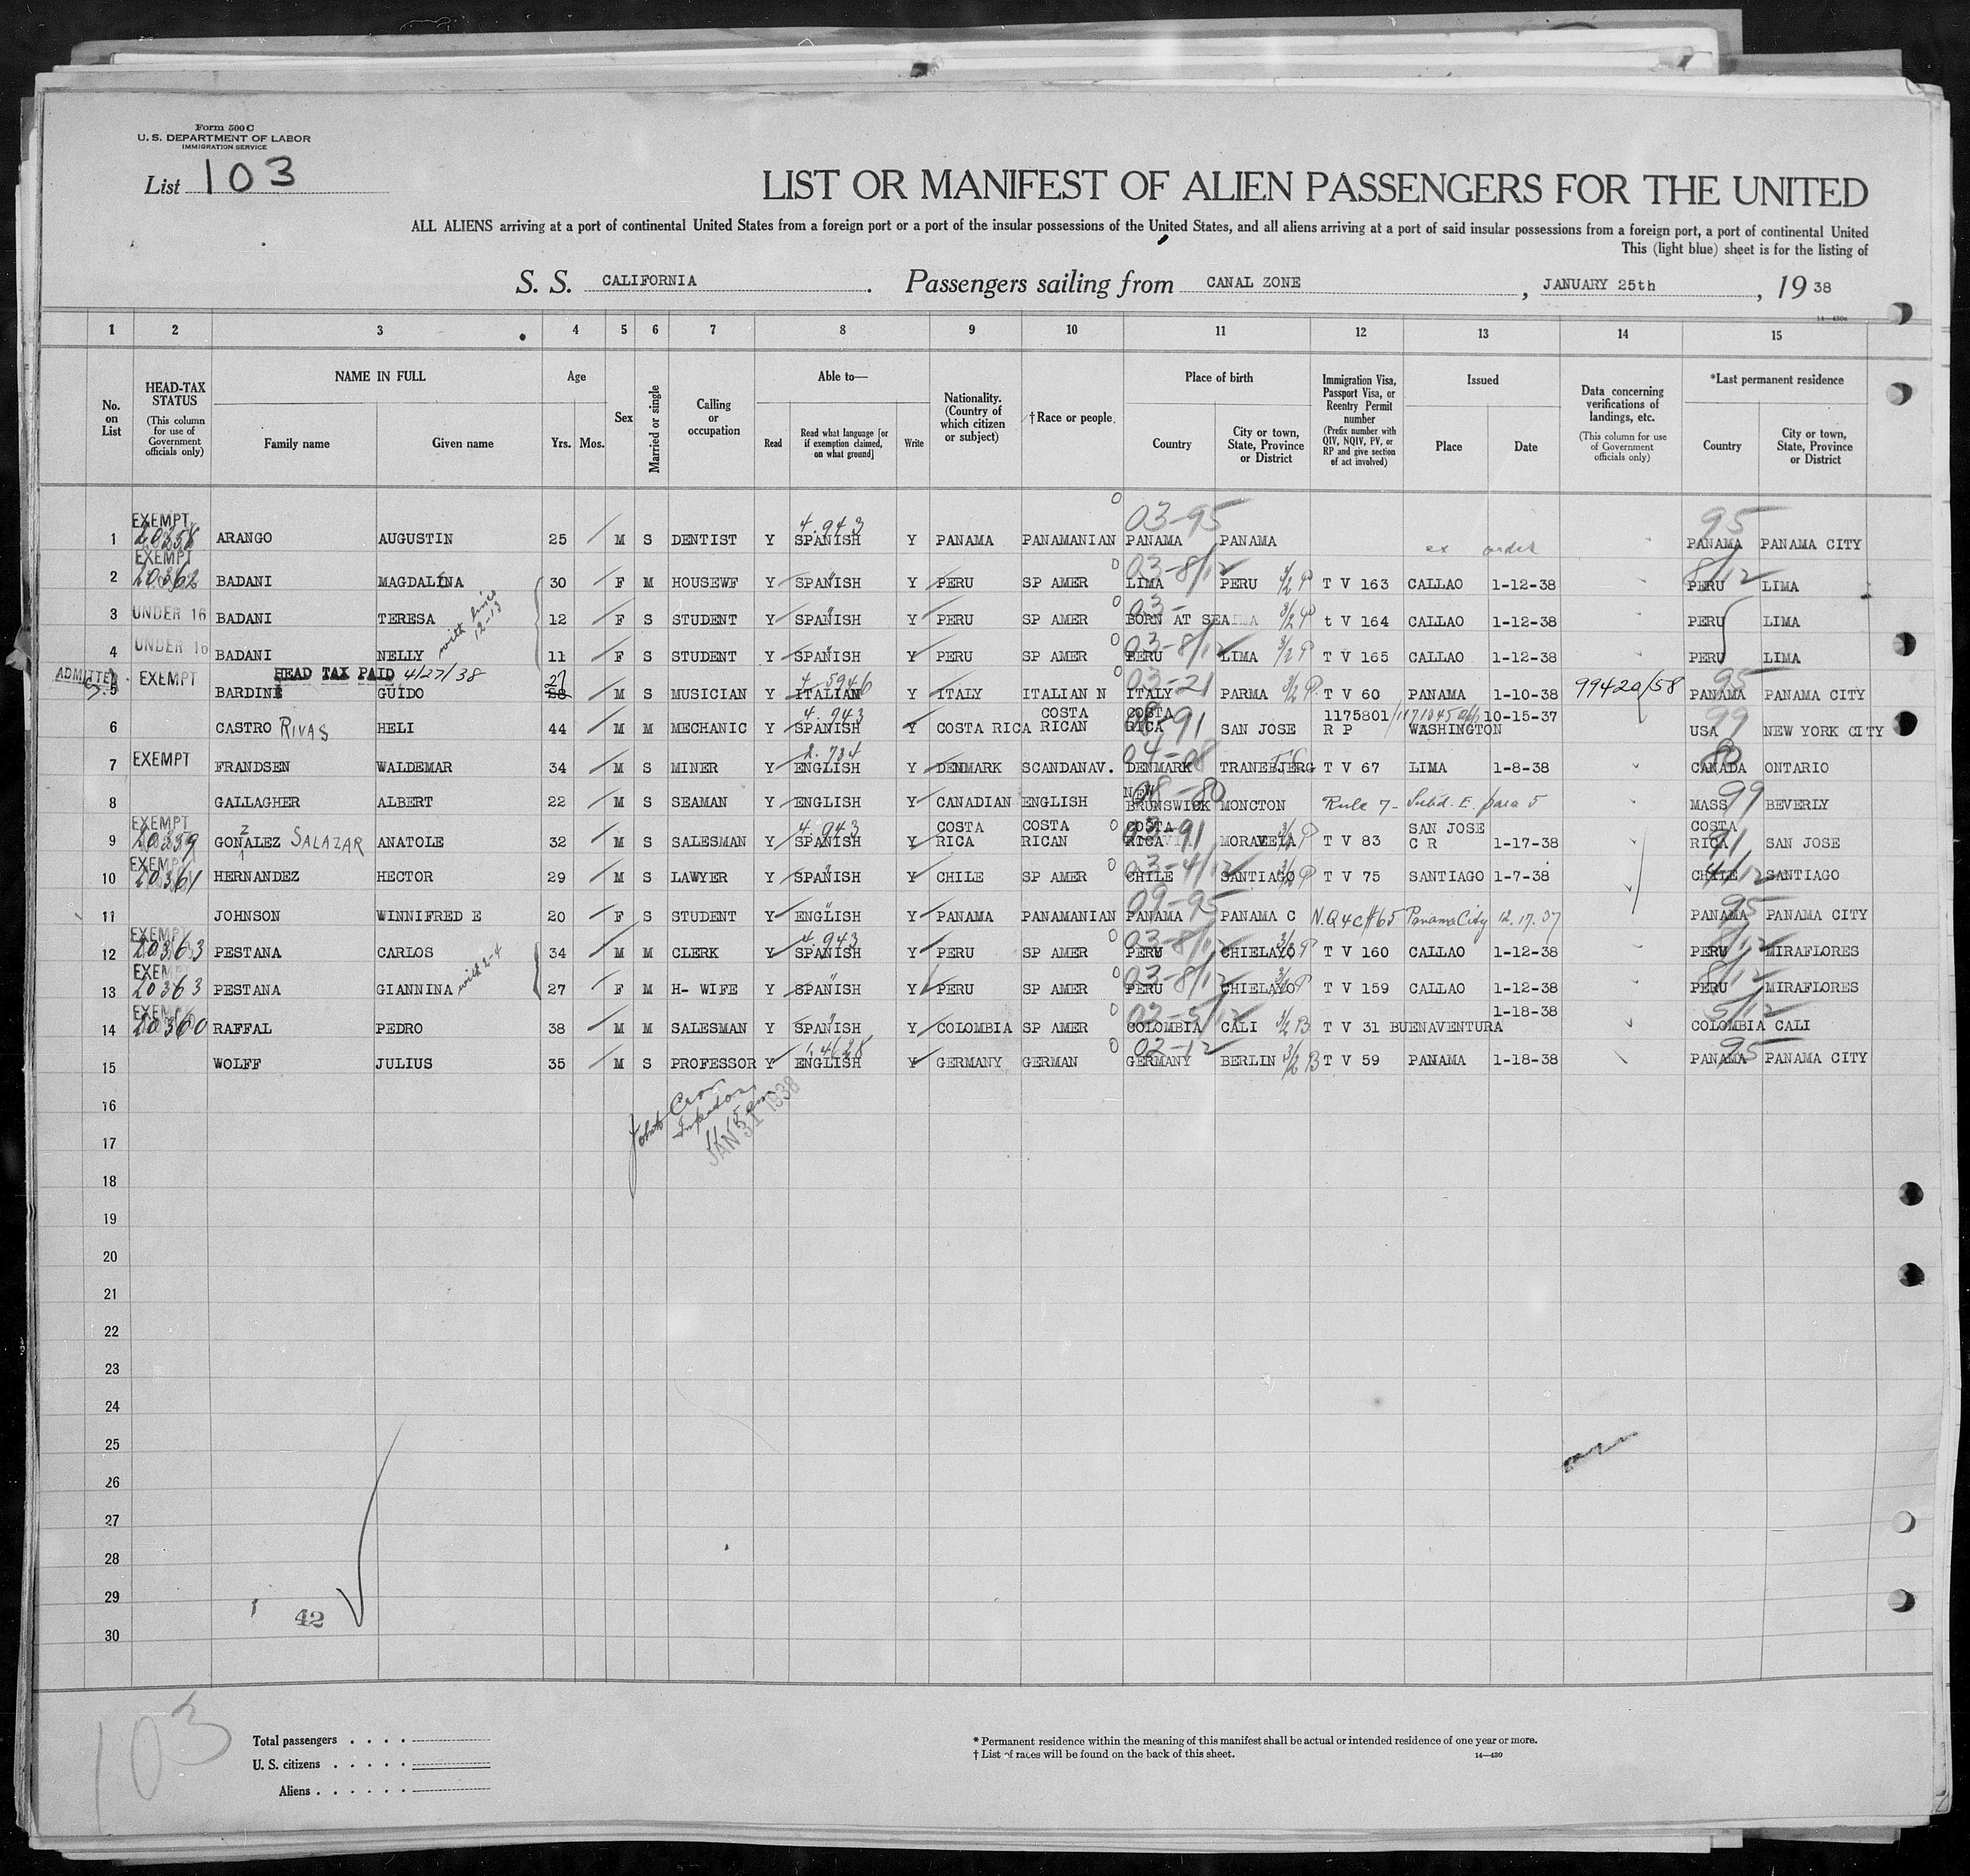 Form 500 C
U. S. DEPARTMENT OF LABOR
IMMIGRATION SERVICE
List 103
LIST OR MANIFEST OF ALIEN PASSENGERS FOR THE UNITED
ALL ALIENS arriving at a port of continental United States from a foreign port or a port of the insular possessions of the United States, and all aliens arriving at a port of said insular possessions from a foreign port, a port of continental United
This (light blue) sheet is for the listing of
S. S. CALIFORNIA. Passengers sailing from CANAL ZONE, JANUARY 25th, 19 38
14—430a
1 2 3 4 5 6 7 8 9 10 11 12 13 14 15
No. on List
HEAD-TAX STATUS (This column for use of Government officials only)
NAME IN FULL Family name Given name
Age Yrs. Mos.
Sex
Married or single
Calling or occupation
Able to— Read Read what language [or if exemption claimed, on what ground] Write
Nationality. (Country of which citizen or subject)
†Race or people
Place of birth Country City or town, State, Province or District
Immigration Visa, Passport Visa, or Reentry Permit number (Prefix number with QIV, NQIV, PV, or RP and give section of act involved)
Issued Place Date
Data concerning verifications of landings, etc. (This column for use of Government officials only)
*Last permanent residence Country City or town, State, Province or District
EXEMPT 4.943 03-95 95
1 20358 ARANGO AUGUSTIN 25 M S DENTIST Y SPANISH Y PANAMA PANAMANIAN PANAMA PANAMA ex order PANAMA PANAMA CITY
EXEMPT 03-8/12 8/12
2 20362 BADANI MAGDALINA 30 F M HOUSEWF Y SPANISH Y PERU SP AMER LIMA PERU 3/2 P T V 163 CALLAO 1-12-38 PERU LIMA
with lines 12-13
3 UNDER 16 BADANI TERESA 12 F S STUDENT Y SPANISH Y PERU SP AMER 03- BORN AT SEA 3/2 P t V 164 CALLAO 1-12-38 PERU LIMA
4 UNDER 16 BADANI NELLY 11 F S STUDENT Y SPANISH Y PERU SP AMER 03-8/12 PERU LIMA 3/2 P T V 165 CALLAO 1-12-38 PERU LIMA
ADMITTED HEAD TAX PAID 4/27/38 27 4.5946 03-21 95
5 EXEMPT BARDINI GUIDO 58 M S MUSICIAN Y ITALIAN Y ITALY ITALIAN N ITALY PARMA 3/2 P. T V 60 PANAMA 1-10-38 99420/58 PANAMA PANAMA CITY
4.943 08-91 99
6 CASTRO RIVAS HELI 44 M M MECHANIC Y SPANISH Y COSTA RICA COSTA RICAN COSTA RICA SAN JOSE 1175801 R P WASHINGTON 10-15-37 USA NEW YORK CITY
2.734 04-08 80
7 EXEMPT FRANDSEN WALDEMAR 34 M S MINER Y ENGLISH Y DENMARK SCANDANAV. DENMARK TRANEBJERG T V 67 LIMA 1-8-38 CANADA ONTARIO
08-80 99
8 GALLAGHER ALBERT 22 M S SEAMAN Y ENGLISH Y CANADIAN ENGLISH NEW BRUNSWICK MONCTON Rule 7- Subd. E. para 5 MASS BEVERLY
EXEMPT 4.943 03-91 91
9 20359 GONZALEZ SALAZAR ANATOLE 32 M S SALESMAN Y SPANISH Y COSTA RICA COSTA RICAN COSTA RICA 3/2 P T V 83 SAN JOSE C R 1-17-38 COSTA RICA SAN JOSE
EXEMPT 03-4/12 4/12
10 20361 HERNANDEZ HECTOR 29 M S LAWYER Y SPANISH Y CHILE SP AMER CHILE SANTIAGO 3/2 P T V 75 SANTIAGO 1-7-38 CHILE SANTIAGO
09-95 95
11 JOHNSON WINNIFRED E 20 F S STUDENT Y ENGLISH Y PANAMA PANAMANIAN PANAMA PANAMA C N.Q 4c #65 Panama City 12.17.37 PANAMA PANAMA CITY
EXEMPT 4.943 03-8/12 8/12
12 20363 PESTANA CARLOS 34 M M CLERK Y SPANISH Y PERU SP AMER PERU CHIELAYO 3/2 P T V 160 CALLAO 1-12-38 PERU MIRAFLORES
with 2-4
EXEMPT 03-8/12 8/12
13 20363 PESTANA GIANNINA 27 F M H- WIFE Y SPANISH Y PERU SP AMER PERU CHIELAYO 3/2 P T V 159 CALLAO 1-12-38 PERU MIRAFLORES
EXEMPT 02-5/12 5/12
14 20360 RAFFAL PEDRO 38 M M SALESMAN Y SPANISH Y COLOMBIA SP AMER COLOMBIA CALI 3/2 B T V 31 BUENAVENTURA 1-18-38 COLOMBIA CALI
02-12 95
15 WOLFF JULIUS 35 M S PROFESSOR Y ENGLISH Y GERMANY GERMAN GERMANY BERLIN 3/2 B T V 59 PANAMA 1-18-38 PANAMA PANAMA CITY
16
Inspector
17 JAN 31 1938
18
19
20
21
22
23
24
25
26
27
28
29
42
30
103
Total passengers
U. S. citizens
Aliens
* Permanent residence within the meaning of this manifest shall be actual or intended residence of one year or more.
† List of races will be found on the back of this sheet. 14—430